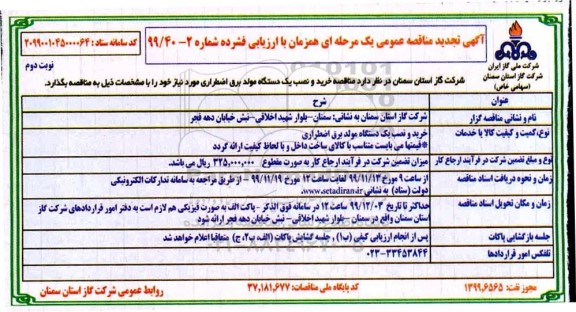 آگهی تجدید مناقصه عمومی یک مرحله ای همزمان با ارزیابی فشرده شماره ۲-۹۹/۴۰
کد سامانه ستاد : ۲۰۹۹۰۰۱۰۴۵۰۰۰۰۶۴
نوبت دوم
شرکت ملی گاز ایران
شرکت گاز استان سمنان
(سهامی خاص)
شرکت گاز استان سمنان در نظر دارد مناقصه خرید و نصب یک دستگاه مولد برق اضطراری مورد نیاز خود را با مشخصات ذیل به مناقصه بگذارد.
عنوان
شرح
نام و نشانی مناقصه گزار
شرکت گاز استان سمنان به نشانی: سمنان-بلوار شهید اخلاقی-نبش خیابان دهه فجر
نوع، کمیت و کیفیت کالا یا خدمات
خرید و نصب یک دستگاه مولد برق اضطراری
*قیمتها می بایست متناسب با کالای ساخت داخل و با لحاظ کیفیت ارائه گردد
نوع و مبلغ تضمین شرکت در فرآیند ارجاع کار
میزان تضمین شرکت در فرآیند ارجاع کار به صورت مقطوع ۳۲۵,۰۰۰,۰۰۰ ریال می باشد.
زمان و نحوه دریافت اسناد مناقصه
از ساعت ۹ مورخ ۹۹/۱۱/۱۳ لغایت ساعت ۱۲ مورخ ۹۹/۱۱/۱۹ - از طریق مراجعه به سامانه تدارکات الکترونیکی
دولت (ستاد) به نشانی www.setadiran.ir.
زمان و مکان تحویل اسناد مناقصه
حداکثر تا تاریخ ۹۹/۱۲/۰۳ ساعت ۱۲ در سامانه فوق الذکر - پاکت الف به صورت فیزیکی هم لازم است به دفتر امور قراردادهای شرکت گاز
استان سمنان واقع در سمنان -بلوار شهید اخلاقی- نبش خیابان دهه فجر ارائه شود
جلسه بازگشایی پاکات
پس از انجام ارزیابی کیفی (ب۱) , جلسه گشایش پاکات (الف، ب۲، ج) متعاقبا اعلام خواهد شد
تلفکس امور قراردادها
۰۲۳-۳۳۴۵۳۸۴۴
مجوز نفت: ۱۳۹۹,۶۵۶۵
کد پایگاه ملی مناقصات: ۳۷,۱۸۱,۶۷۷
روابط عمومی شرکت گاز استان سمنان